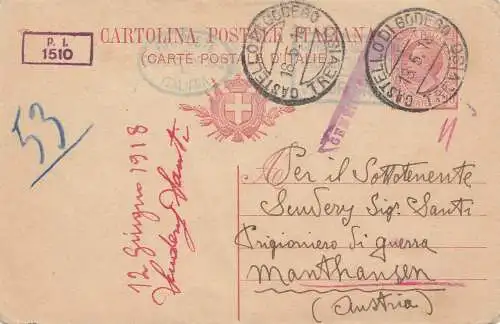 P. I.
1510
CARTOLINA POSTALE ITALIANA
(CARTE POSTALE D'ITALIE)
CASTELLO DI GODEGO
18.5.18
CASTELLO DI GODEGO
18.5.18
53
12 Giugno 1918
Per il Sottotenente
Sendery Sig. Santi
Prigioniero di guerra
Manthausen
(Austria)